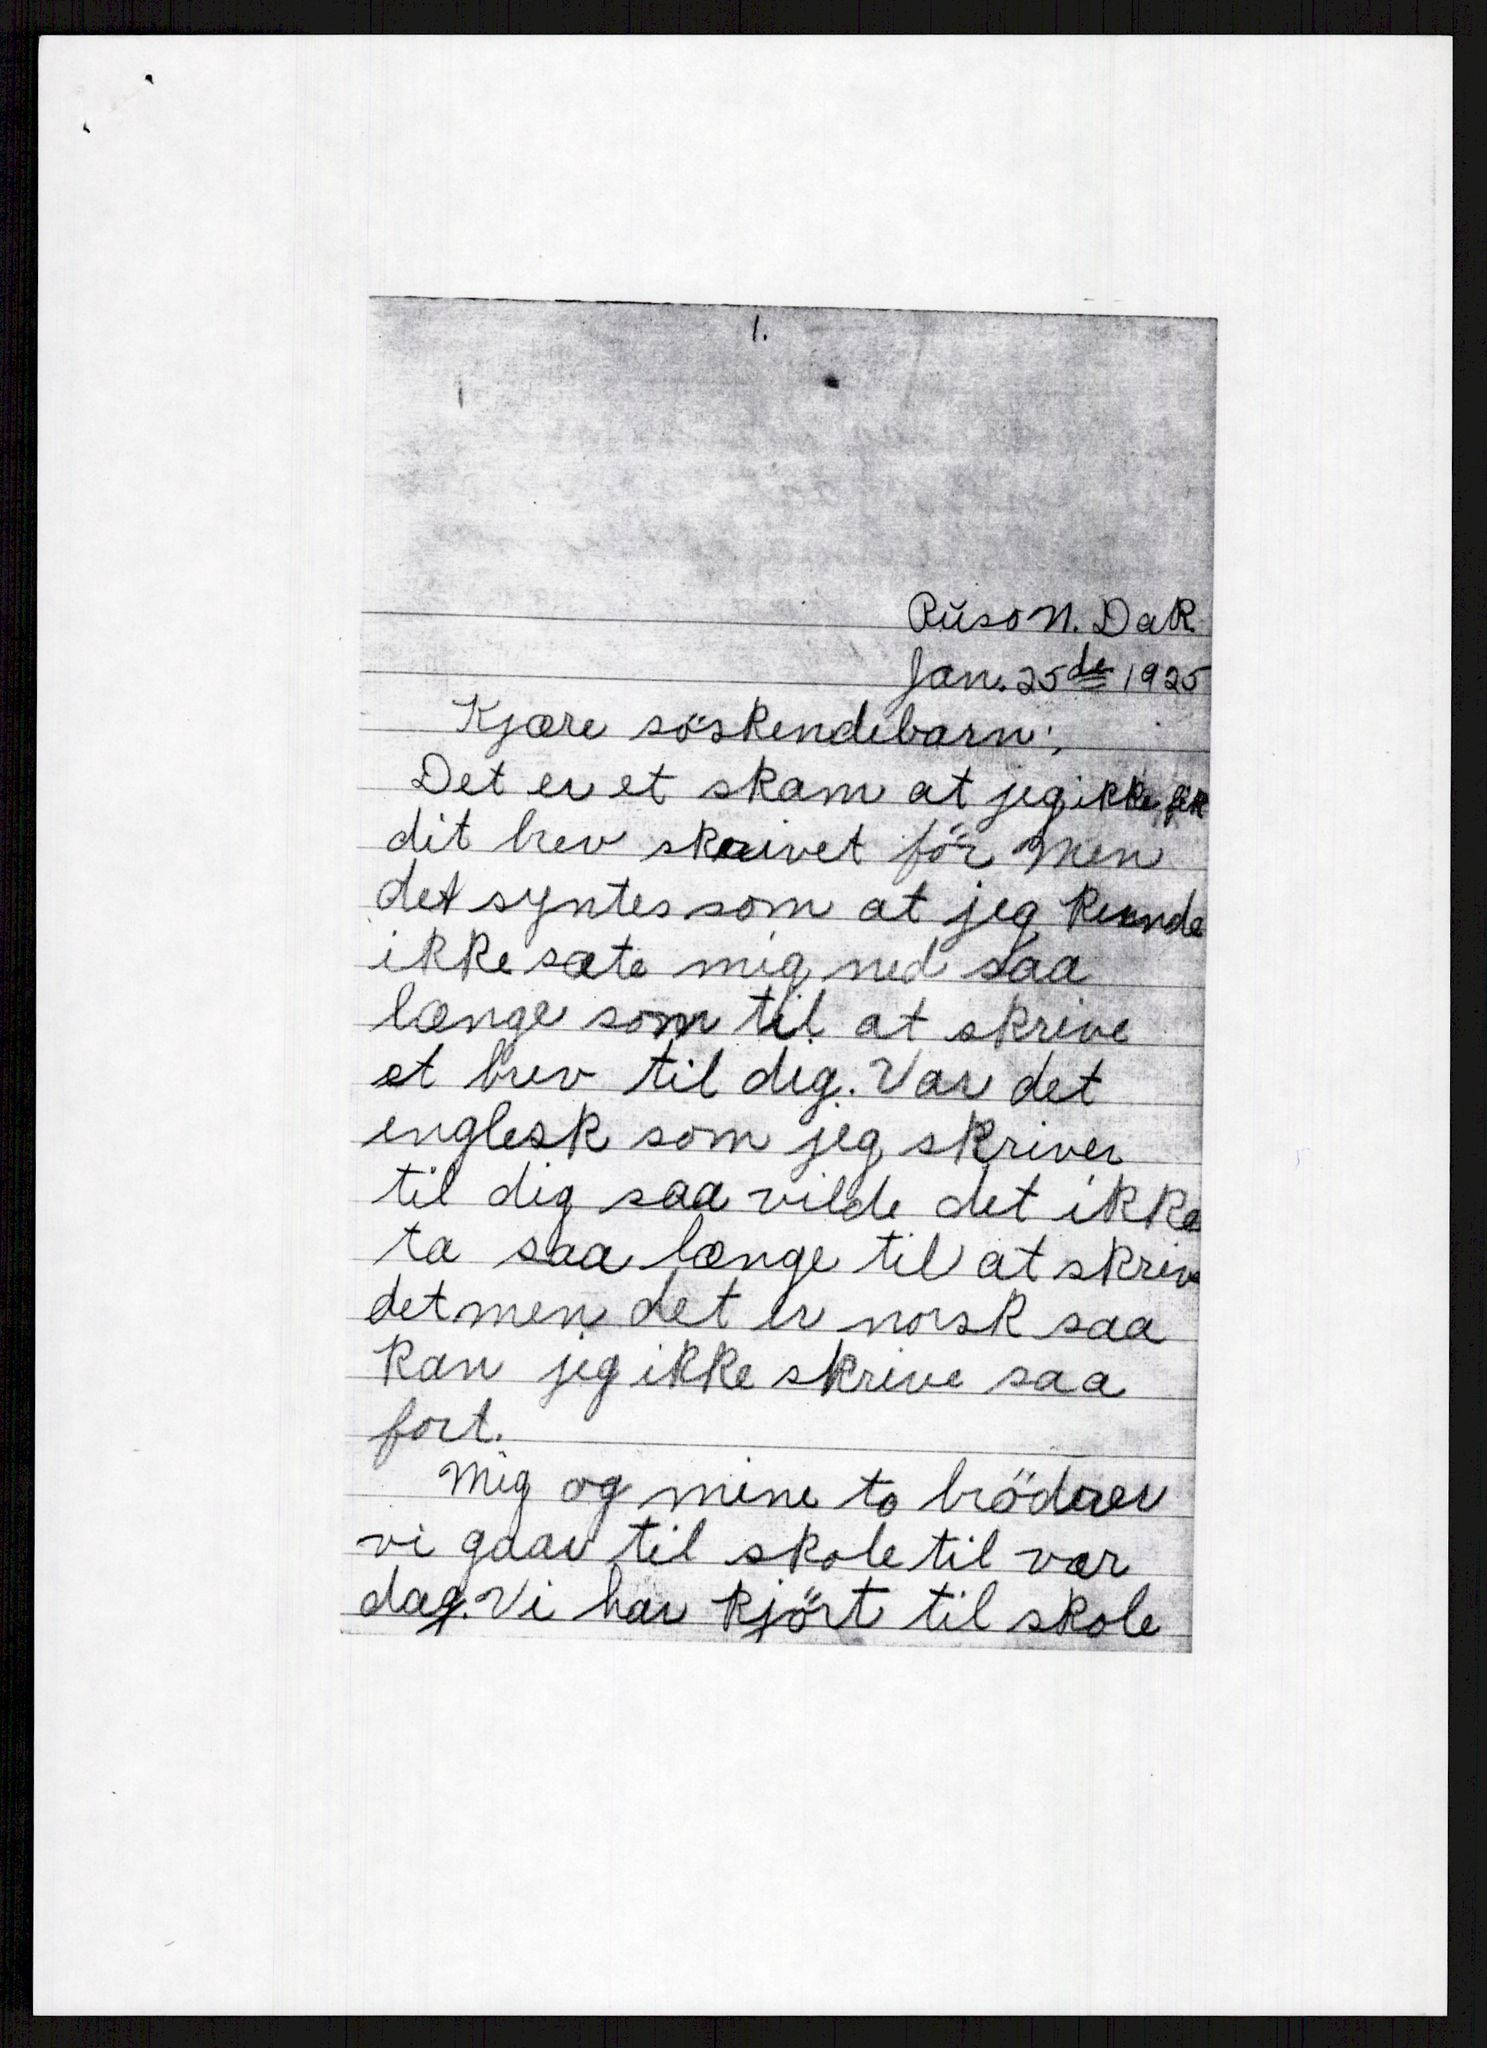 1.
Rüso N. Dak.
Jan. 25de 1925
Kjære söskendebarn;
Det er et skam at jeg ikke fik
dit brev skrivet för men
det syntes som at jeg kunde
ikke sæte mig ned saa
længe som til at skrive
et brev til dig. Var det
englesk som jeg skriver
til dig saa vilde det ikke
ta saa længe til at skrive
det men det er norsk saa
kan jeg ikke skrive saa
fort.
Mig og mine to brödrer
vi gaar til skole til vær
dag. Vi har kjört til skole